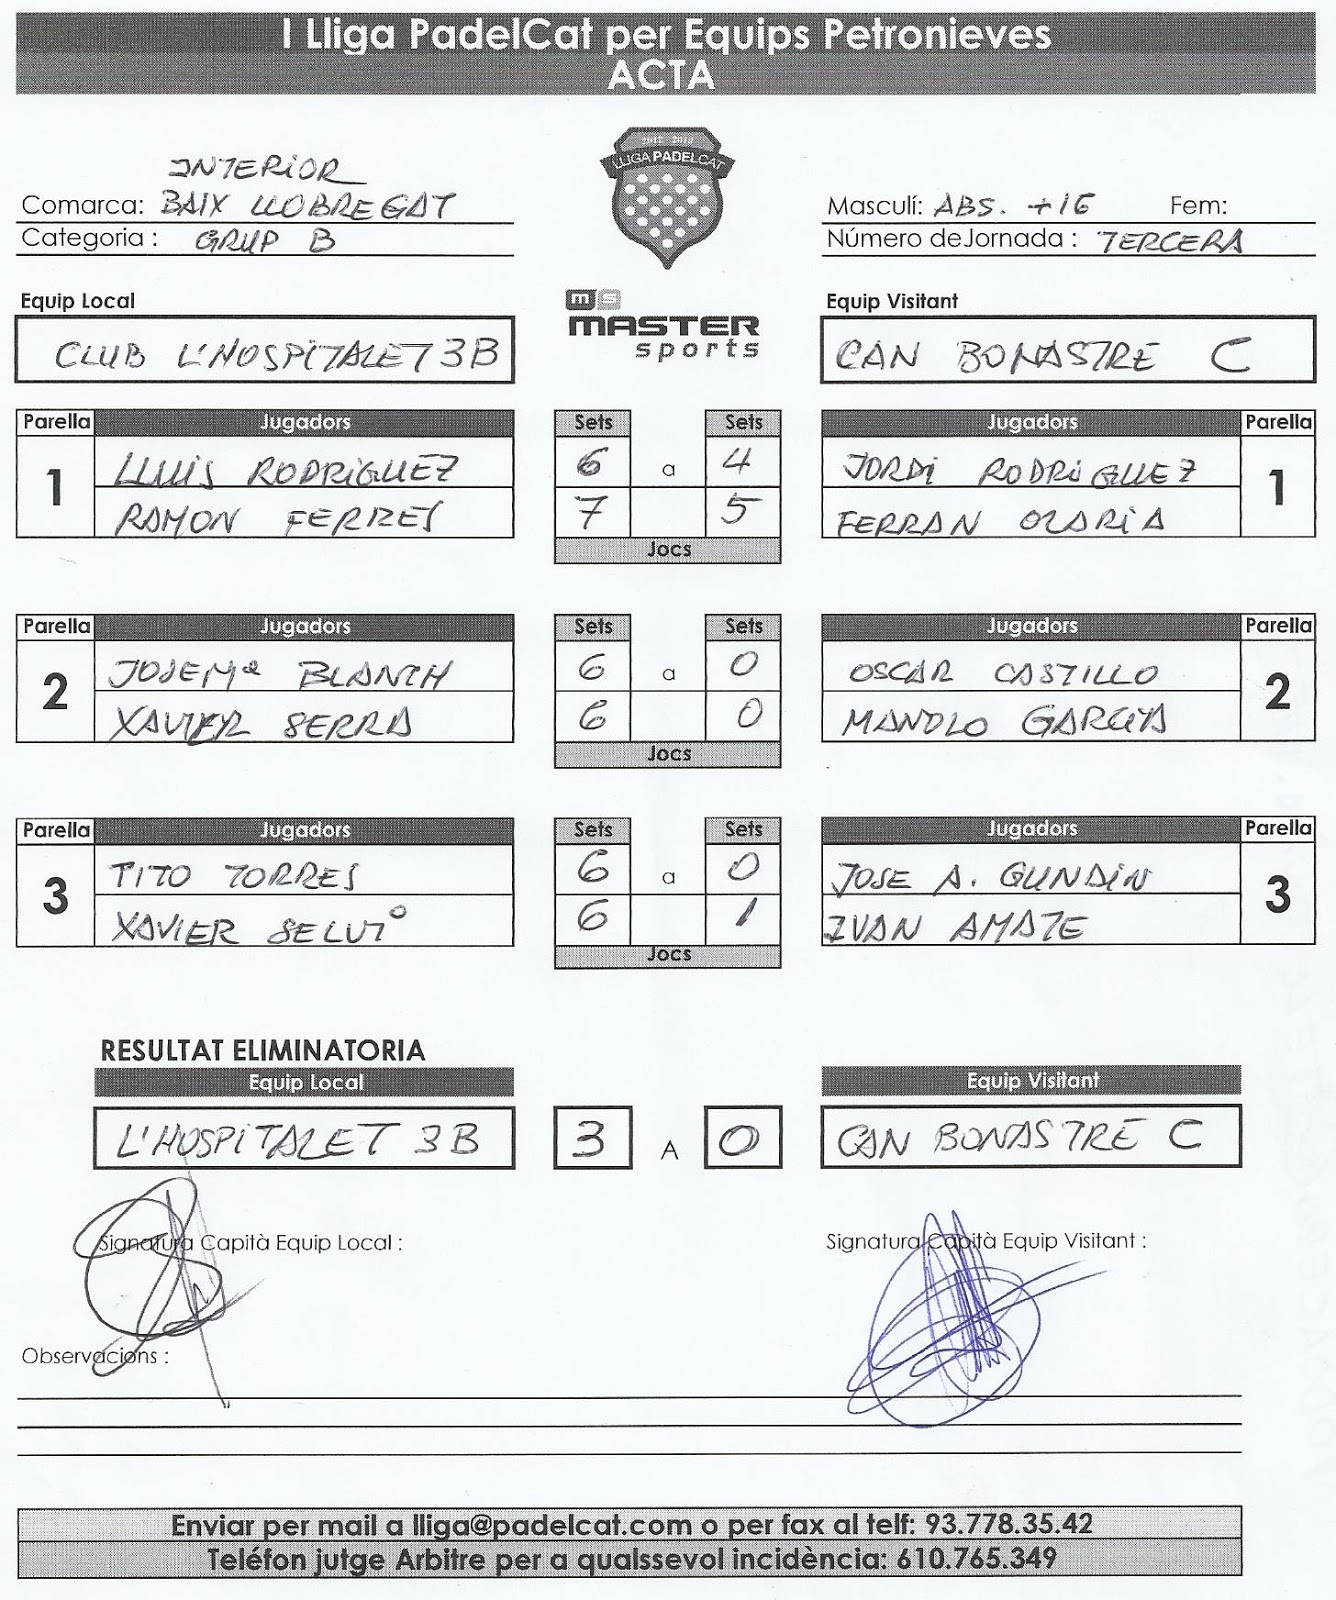 I Lliga PadelCat per Equips Petronieves
ACTA
INTERIOR
Comarca: BAIX LLOBREGAT
Categoria : GRUP B
LLIGA PADELCAT
Masculí: ABS. +16 Fem:
Número deJornada : TERCERA
MS
MASTER
sports
Equip Local
CLUB L'HOSPITALET 3B
Equip Visitant
CAN BONASTRE C
Parella Jugadors Sets Sets Jugadors Parella
1 LLUIS RODRIGUEZ 6 a 4 JORDI RODRIGUEZ 1
RAMON FERRES 7 5 FERRAN OLARIA
Jocs
Parella Jugadors Sets Sets Jugadors Parella
2 JOSEMª BLANCH 6 a 0 OSCAR CASTILLO 2
XAVIER SERRA 6 0 MANOLO GARCIA
Jocs
Parella Jugadors Sets Sets Jugadors Parella
3 TITO TORRES 6 a 0 JOSE A. GUNDIN 3
XAVIER 6 1 IVAN AMATE
Jocs
RESULTAT ELIMINATORIA
Equip Local Equip Visitant
L'HOSPITALET 3B 3 A 0 CAN BONASTRE C
Signatura Capità Equip Local :
Signatura Capità Equip Visitant :
Observacions :
Enviar per mail a lliga@padelcat.com o per fax al telf: 93.778.35.42
Teléfon jutge Arbitre per a qualssevol incidència: 610.765.349